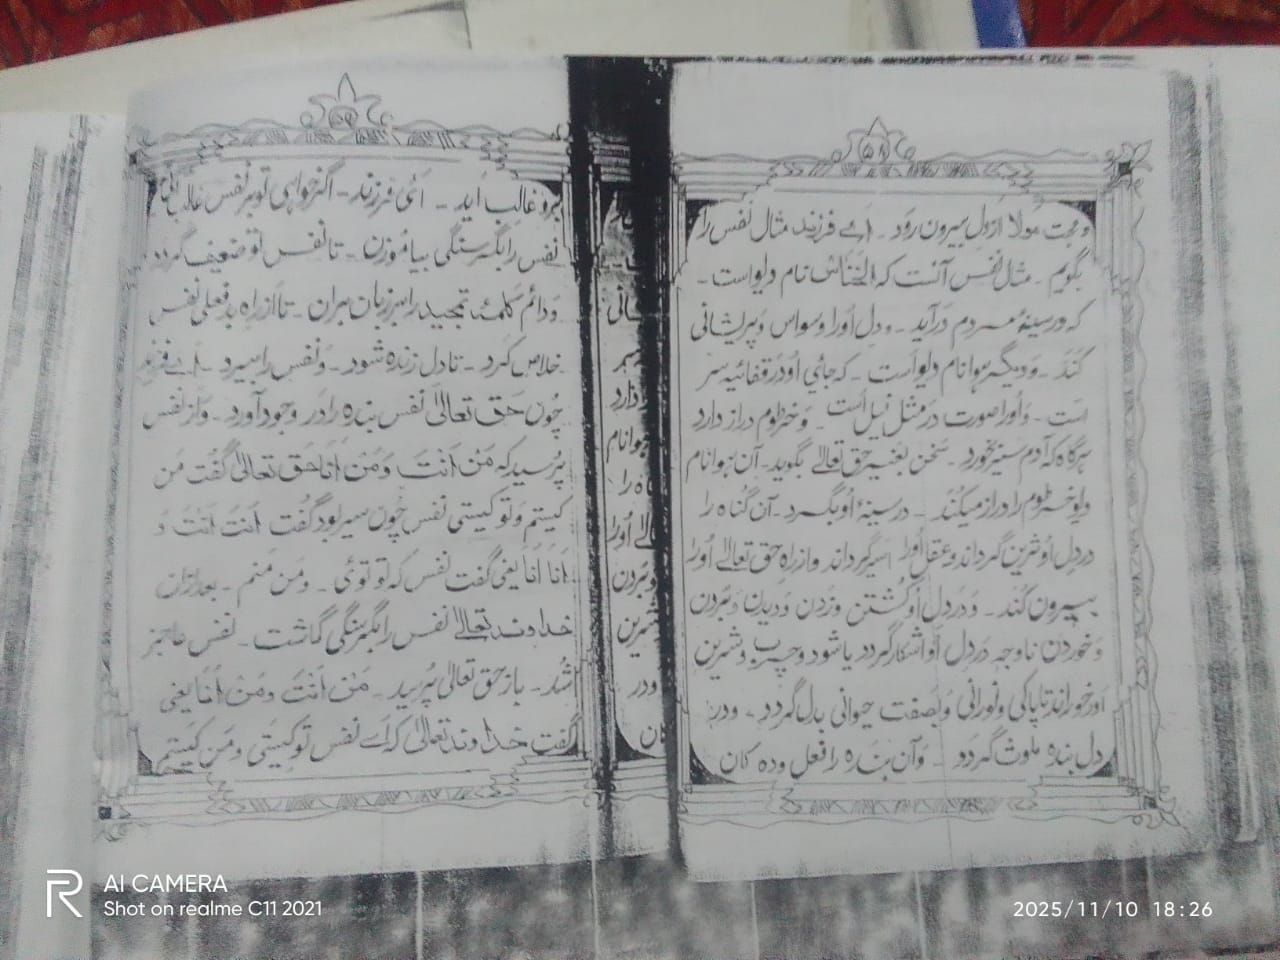 ۵۸
و محبت مولا از دل بیرون رود ۔ اے فرزند مثال نفس را
بگویم ۔ مثل نفس آنست که الخناس نام دیو است ۔
که در سینهٔ مردم درآید ۔ و دل اورا وسواس و پریشانی
کند ۔ و دیگر هوا نام دیو است ۔ که جائی او در قفائیه سر
است ۔ و اورا صورت در مثل نیل است ۔ و خرطوم دراز دارد
هرگاه که آدم سیر بخورد ۔ سخن بغیر حق تعالے بگوید ۔ آن هوا نام
دیو خرطوم را دراز میکند ۔ در سینهٔ او بگرد ۔ آن گناه را
در دل او شرین گرداند و عقل اورا اسیر گرداند و از راه حق تعالے اورا
بیرون کند ۔ و در دل او کشتن و زدن و دیدن و بردن
و خوردن ناوجه در دل او آشکار گردد یا شود و چرب و شرین
اور خوراند تا پاکی و نورانی و بصفت حیوانی بدل گردد ۔ و در
دل بنده ملوث گردو ۔ و آن بنده را فعل وده کان
۵۹
برو غالب آید ۔ ائ فرزند ۔ اگر خواهی تو بر نفس غالب
نفس را بگرسنگی بیاموزن ۔ تا نفس تو ضعیف گردد
و دائم کلمهٔ تمجید را بر زبان بران ۔ تا از راه بد فعلی نفس
خلاص گرد ۔ تا دل زنده شود ۔ و نفس را بمیرد ۔ اے فرزند
چون حق تعالیٰ نفس بنده را در وجود آورد ۔ و از نفس
پرسید که من انت و من انا حق تعالیٰ گفت من
کیستم و تو کیستی نفس چون سیر بود گفت انت انت و
انا انا یعنی گفت نفس که تو توئی ۔ و من منم ۔ بعد ازان
خداوند تعالے نفس را بگرسنگی گماشت ۔ نفس عاجز
شد ۔ باز حق تعالیٰ پرسید ۔ من انت و من انا یعنی
گفت خداوند تعالیٰ کہ اے نفس تو کیستی و من کیستم
AI CAMERA
Shot on realme C11 2021
2025/11/10 18:26